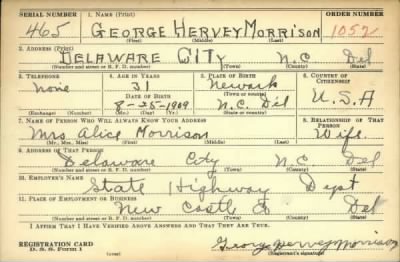 SERIAL NUMBER 1. NAME (Print) ORDER NUMBER
465 GEORGE HERVEY MORRISON 1052
(First) (Middle) (Last)
2. ADDRESS (Print)
DELAWARE CITY N.C Del
(Number and street or R. F. D. number) (Town) (County) (State)
3. TELEPHONE 4. AGE IN YEARS 5. PLACE OF BIRTH 6. COUNTRY OF CITIZENSHIP
None 31 Newark
DATE OF BIRTH (Town or county)
8-25-1909 N.C. Del U.S.A
(Exchange) (Number) (Mo.) (Day) (Yr.) (State or country)
7. NAME OF PERSON WHO WILL ALWAYS KNOW YOUR ADDRESS 8. RELATIONSHIP OF THAT PERSON
Mrs Alice Morrison Wife
(Mr., Mrs., Miss) (First) (Middle) (Last)
9. ADDRESS OF THAT PERSON
Delaware City N.C Del
(Number and street or R. F. D. number) (Town) (County) (State)
10. EMPLOYER'S NAME
State Highway Dept
11. PLACE OF EMPLOYMENT OR BUSINESS
New Castle Del
(Number and street or R. F. D. number) (Town) (County) (State)
I AFFIRM THAT I HAVE VERIFIED ABOVE ANSWERS AND THAT THEY ARE TRUE.
REGISTRATION CARD
D. S. S. Form 1 (over) George Hervey Morrison
(Registrant's signature)